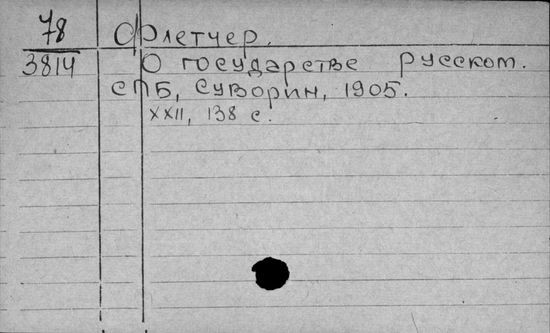 78
3814
Флетчер.
О государстве русском.
СПБ, Суворин, 1905.
XXII, 138 с.